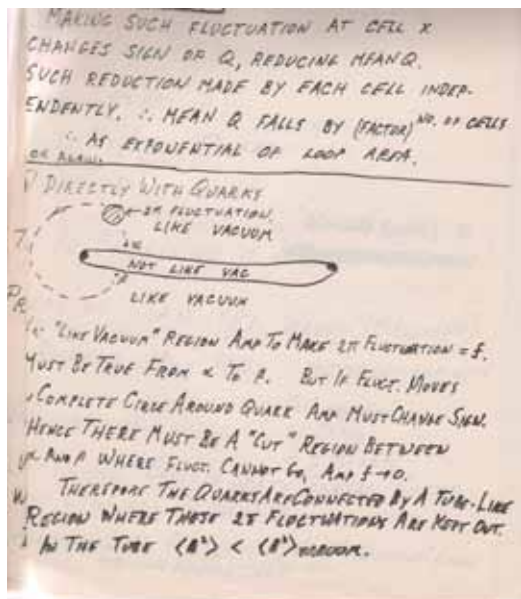 MAKING SUCH FLUCTUATION AT CELL X
CHANGES SIGN OF Q, REDUCING MEAN Q.
SUCH REDUCTION MADE BY EACH CELL INDEP-
ENDENTLY. ∴ MEAN Q FALLS BY (FACTOR)^NO. OF CELLS
∴ AS EXPONENTIAL OF LOOP AREA.
OR AGAIN.
DIRECTLY WITH QUARKS
2π FLUCTUATION
LIKE VACUUM
α
NOT LIKE VAC
β
LIKE VACUUM
"LIKE VACUUM" REGION AMP TO MAKE 2π FLUCTUATION = f.
MUST BE TRUE FROM α TO β. BUT IF FLUCT. MOVES
COMPLETE CIRCLE AROUND QUARK AMP MUST CHANGE SIGN.
HENCE THERE MUST BE A "CUT" REGION BETWEEN
α AND β WHERE FLUCT. CANNOT GO, AMP f→0.
THEREFORE THE QUARKS ARE CONNECTED BY A TUBE-LIKE
REGION WHERE THESE 2π FLUCTUATIONS ARE KEPT OUT.
IN THE TUBE ⟨B²⟩ < ⟨B²⟩VACUUM.